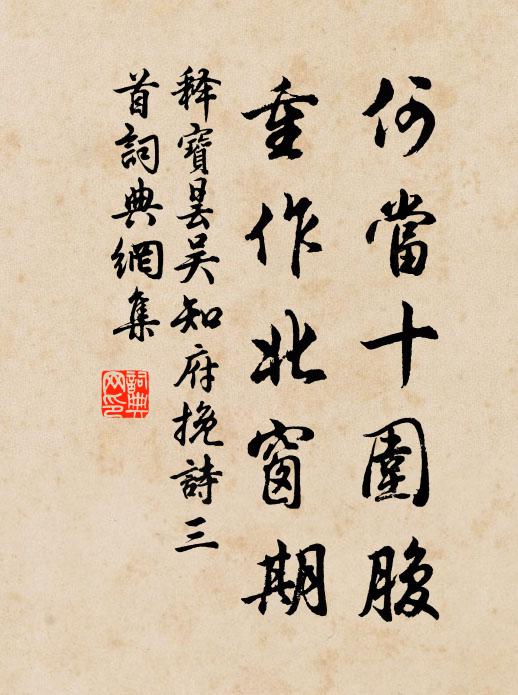 何當十圍腹
重作北窗期
釋寶曇吳知府挽詩三
首詞典網集
詞典
网印